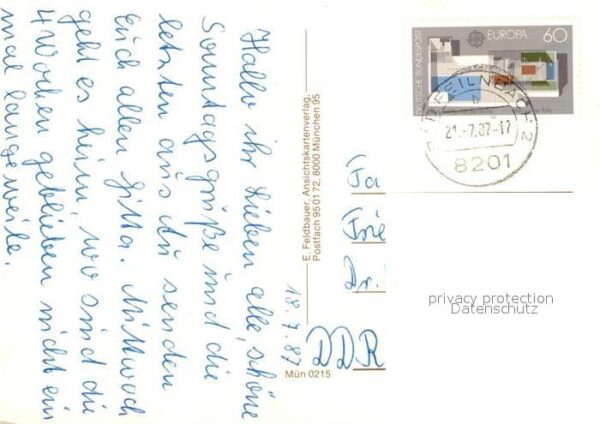 Hallo ihr Lieben alle, schöne
Sonntagsgrüße und die
letzten aus
senden
Euch allen Gitta. Mittwoch
geht es heim, wo sind die
4 Wochen geblieben nicht ein
mal langeweile.
18.7.87
E. Feldbauer, Ansichtskartenverlag,
Postfach 95 01 72, 8000 München 95
Mün 0215
DEUTSCHE BUNDESPOST
EUROPA
60
FEILNBACH 2
b
21.-7.87-17
8201
Fa
Frie
Dr.
DDR
privacy protection
Datenschutz